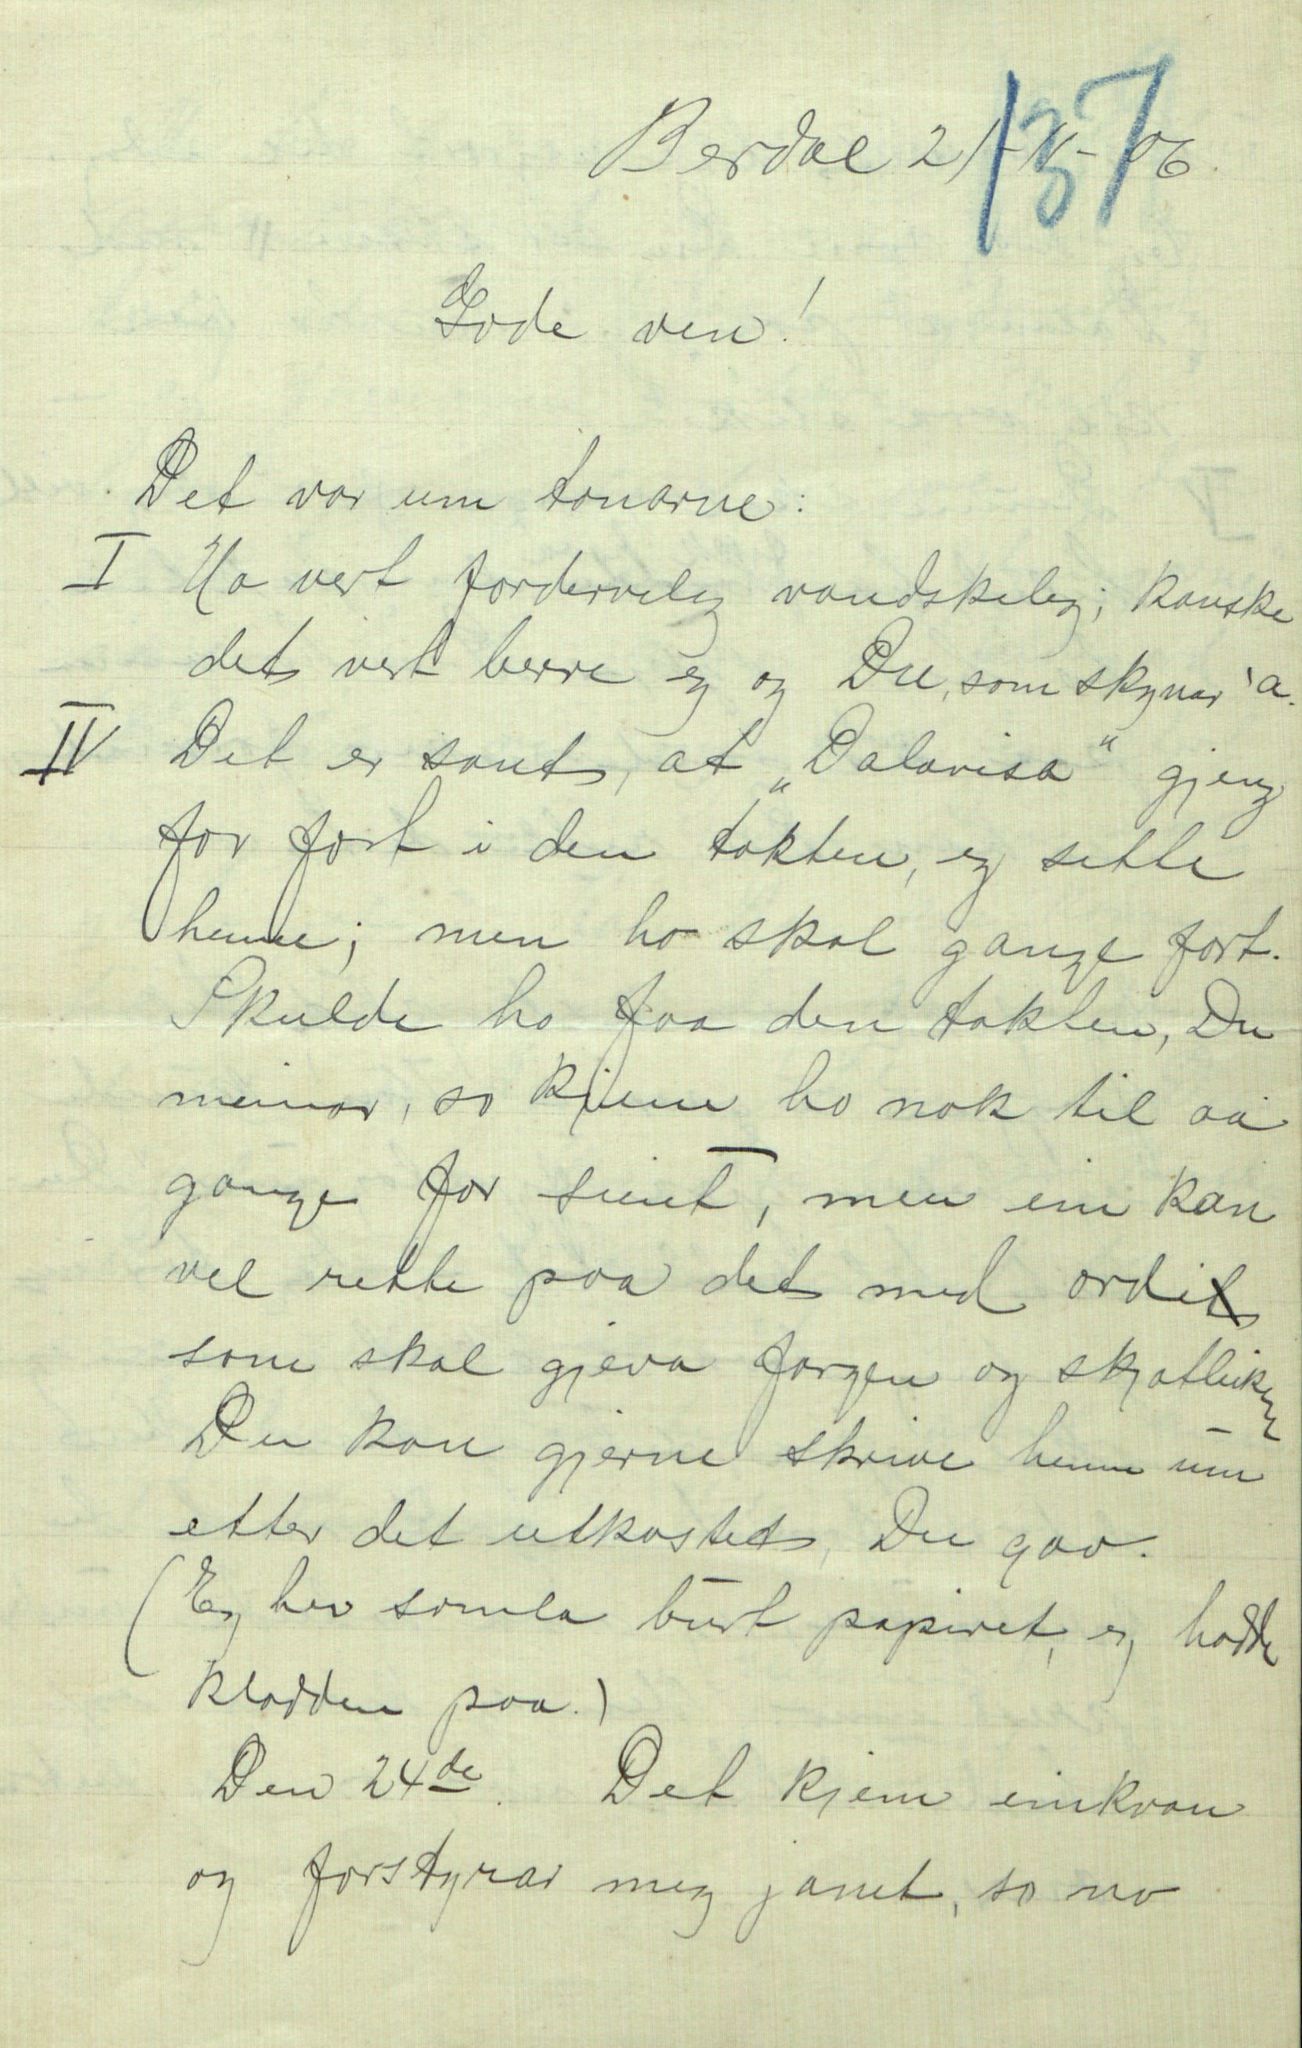 Berdal 21-X-06.
137
Gode ven!
Det var um tonarne:
I Ho vert fordervelig vandskeleg; kanske
det vert berre eg og Du, som skynar 'a.
IV Det er sant, at „Dalavisa“ gjeng
for fort i den takten, eg sette
henne; men ho skal gange fort.
Skulde ho faa den takten, Du
meinar, so kjeme ho nok til aa
gange for seint, men ein kan
vel rette paa det med ordi
som skal gjeva fargen og skjotleiken
Du kan gjerne skrive henne um
etter det utkastet, Du gav.
(Eg hev somla burt papiret, eg hadde
kladden paa.)
Den 24de. Det kjem einkvan
og forstyrar meg jamt, so no